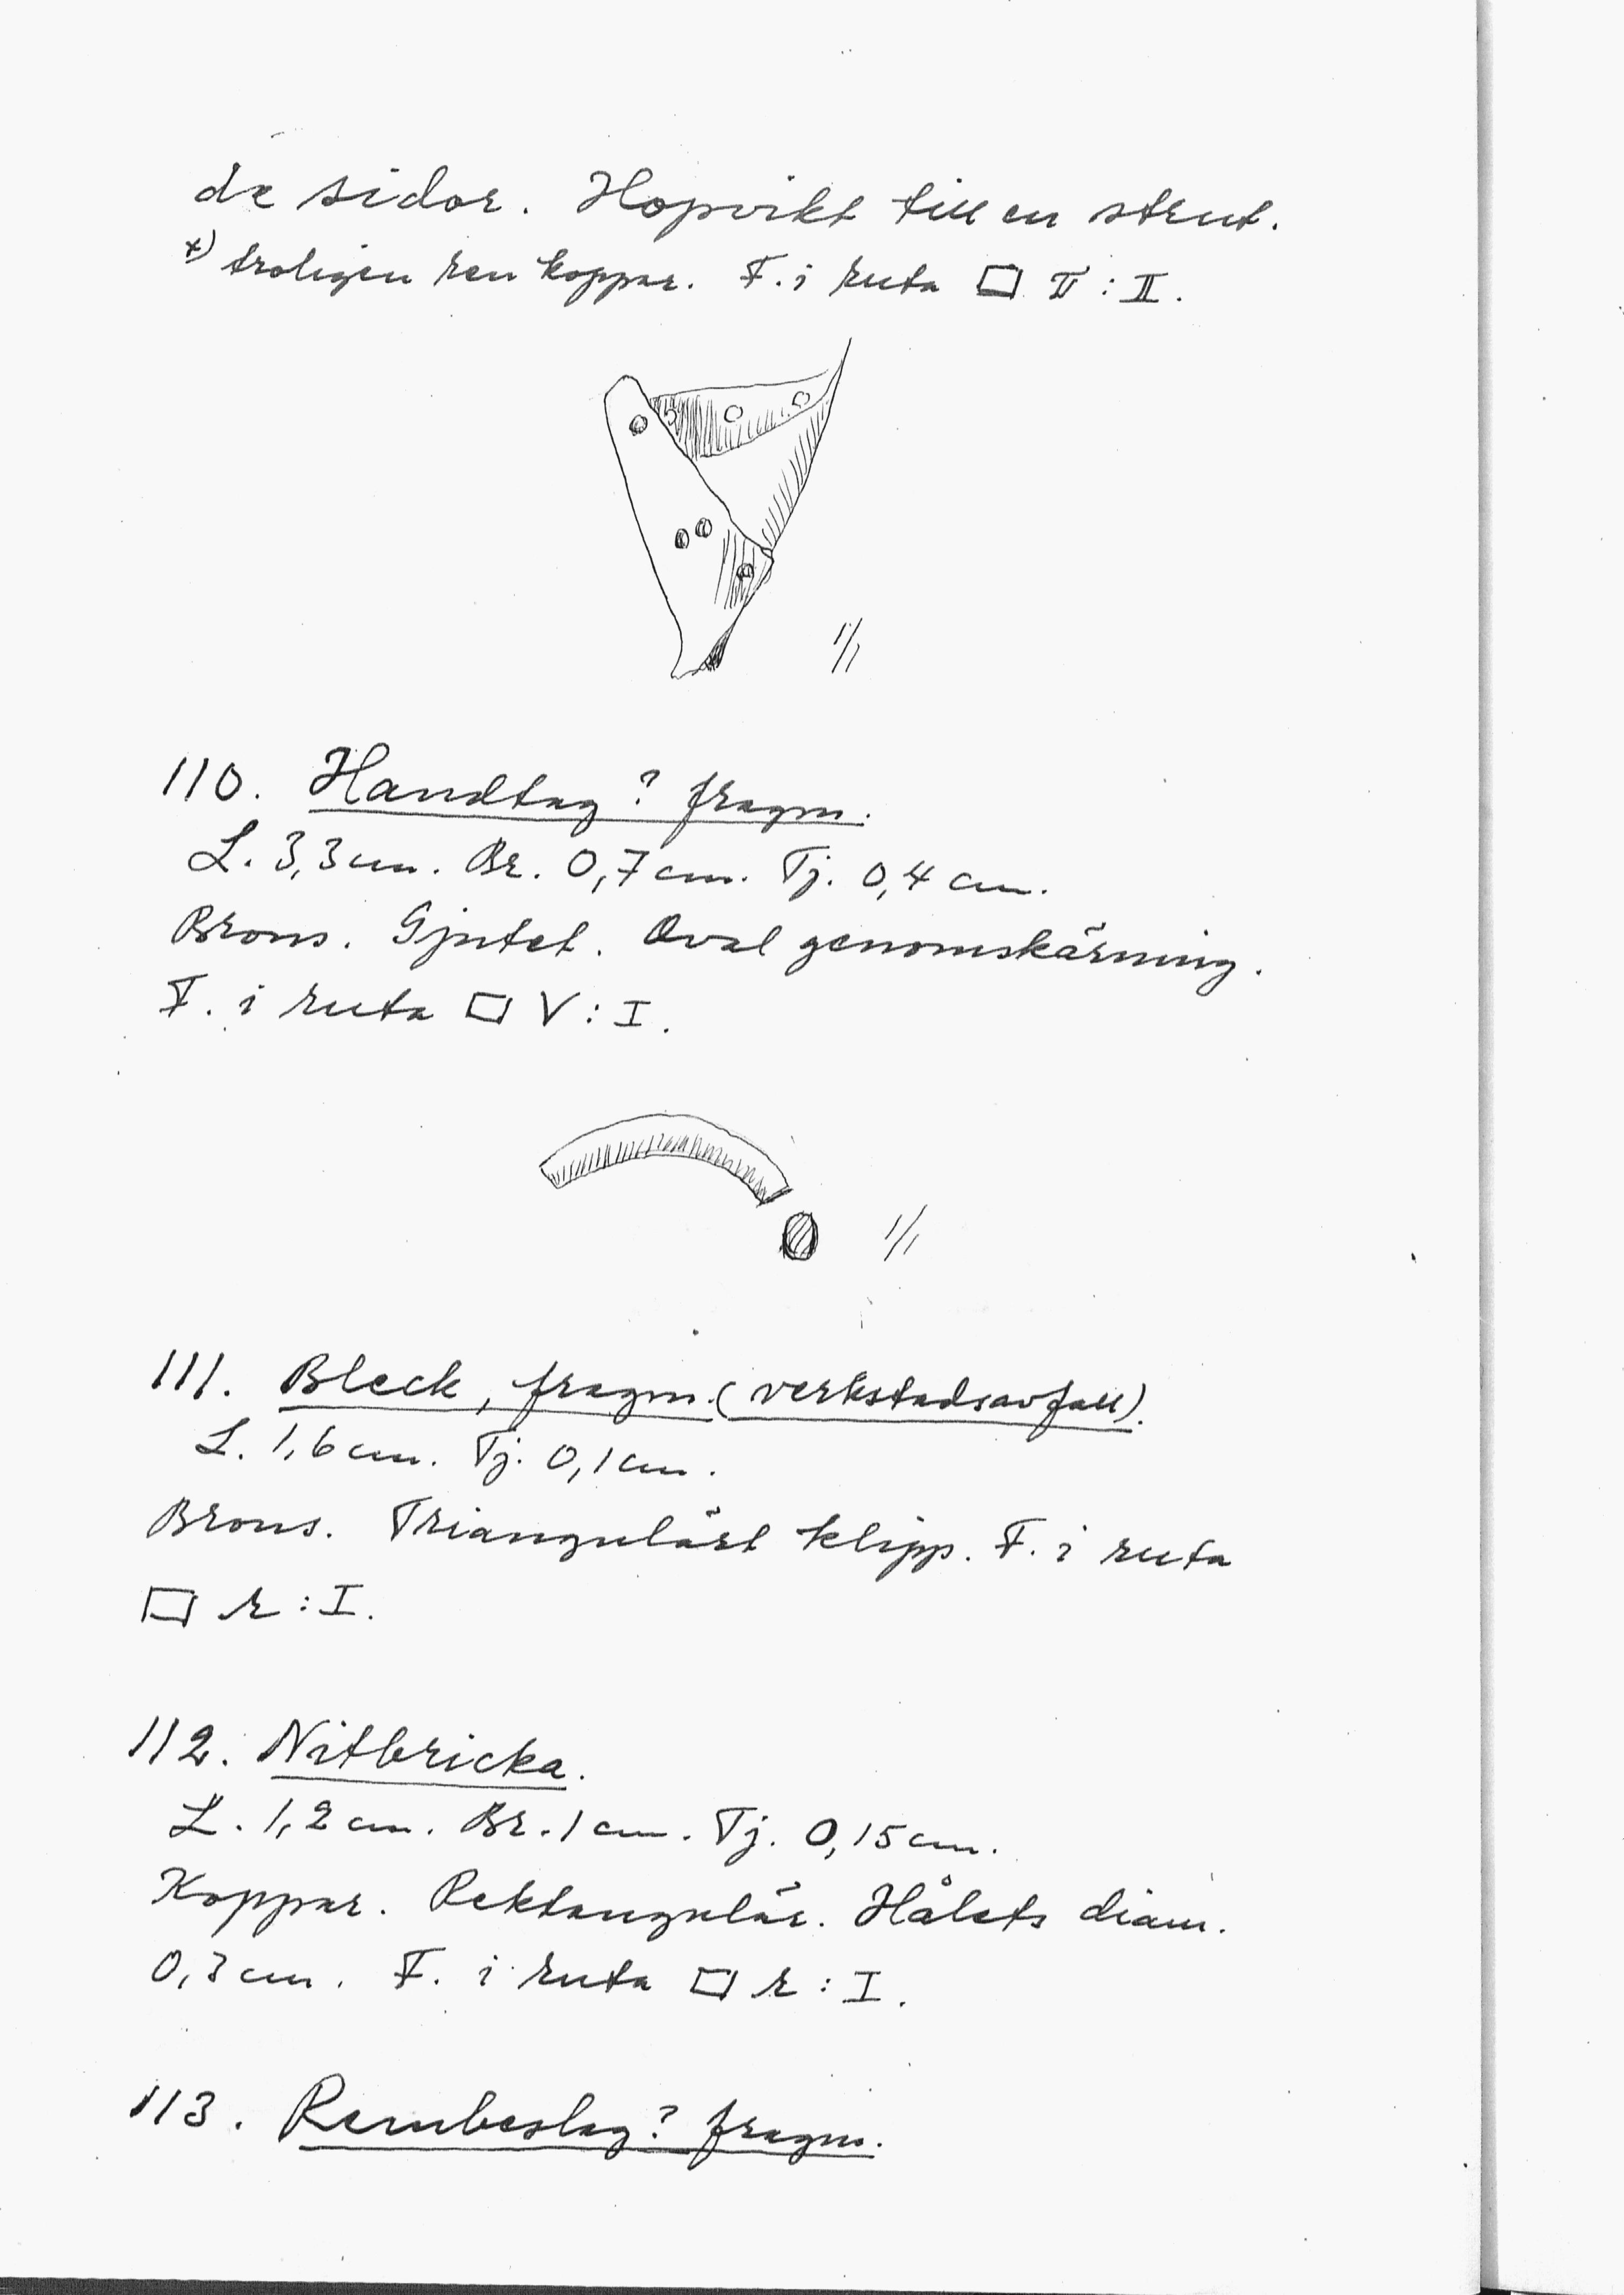 de sidor. Hopvikt till en strut.
x) troligen ren koppar. F. i ruta □ : II.
1/1
110. Handtag? fragm.
L. 3,3 cm. Br. 0,7 cm. Tj. 0,4 cm.
Brons. Gjutet. Oval genomskärning.
F. i ruta □ V : I.
1/1
111. Bleck, fragm. (verkstadsavfall).
L. 1,6 cm. Tj. 0,1 cm.
Brons. Triangulärt klipp. F. i ruta
□ r : I.
112. Nitbricka.
L. 1,2 cm. Br. 1 cm. Tj. 0,15 cm.
Koppar. Rektangulär. Hålets diam.
0,3 cm. F. i ruta □ r : I.
113. Rembeslag? fragm.